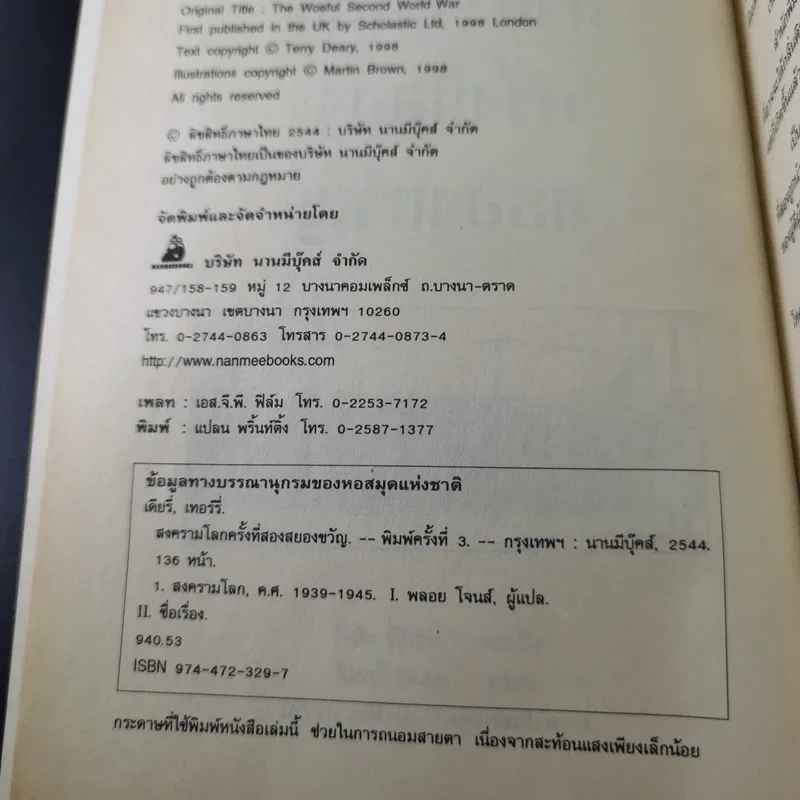 Original Title : The Woeful Second World War
First published in the UK by Scholastic Ltd, 1998 London
Text copyright © Terry Deary, 1998
Illustrations copyright © Martin Brown, 1998
All rights reserved
© ลิขสิทธิ์ภาษาไทย 2544 : บริษัท นานมีบุ๊คส์ จำกัด
ลิขสิทธิ์ภาษาไทยเป็นของบริษัท นานมีบุ๊คส์ จำกัด
อย่างถูกต้องตามกฎหมาย
จัดพิมพ์และจัดจำหน่ายโดย
บริษัท นานมีบุ๊คส์ จำกัด
947/158-159 หมู่ 12 บางนาคอมเพล็กซ์ ถ.บางนา-ตราด
แขวงบางนา เขตบางนา กรุงเทพฯ 10260
โทร. 0-2744-0863 โทรสาร 0-2744-0873-4
http://www.nanmeebooks.com
เพลท : เอส.จี.พี. ฟิล์ม โทร. 0-2253-7172
พิมพ์ : แปลน พริ้นท์ติ้ง โทร. 0-2587-1377
ข้อมูลทางบรรณานุกรมของหอสมุดแห่งชาติ
เดียรี่, เทอร์รี่.
สงครามโลกครั้งที่สองสยองขวัญ. -- พิมพ์ครั้งที่ 3. -- กรุงเทพฯ : นานมีบุ๊คส์, 2544.
136 หน้า.
1. สงครามโลก, ค.ศ. 1939-1945. I. พลอย โจนส์, ผู้แปล.
II. ชื่อเรื่อง.
940.53
ISBN 974-472-329-7
กระดาษที่ใช้พิมพ์หนังสือเล่มนี้ ช่วยในการถนอมสายตา เนื่องจากสะท้อนแสงเพียงเล็กน้อย